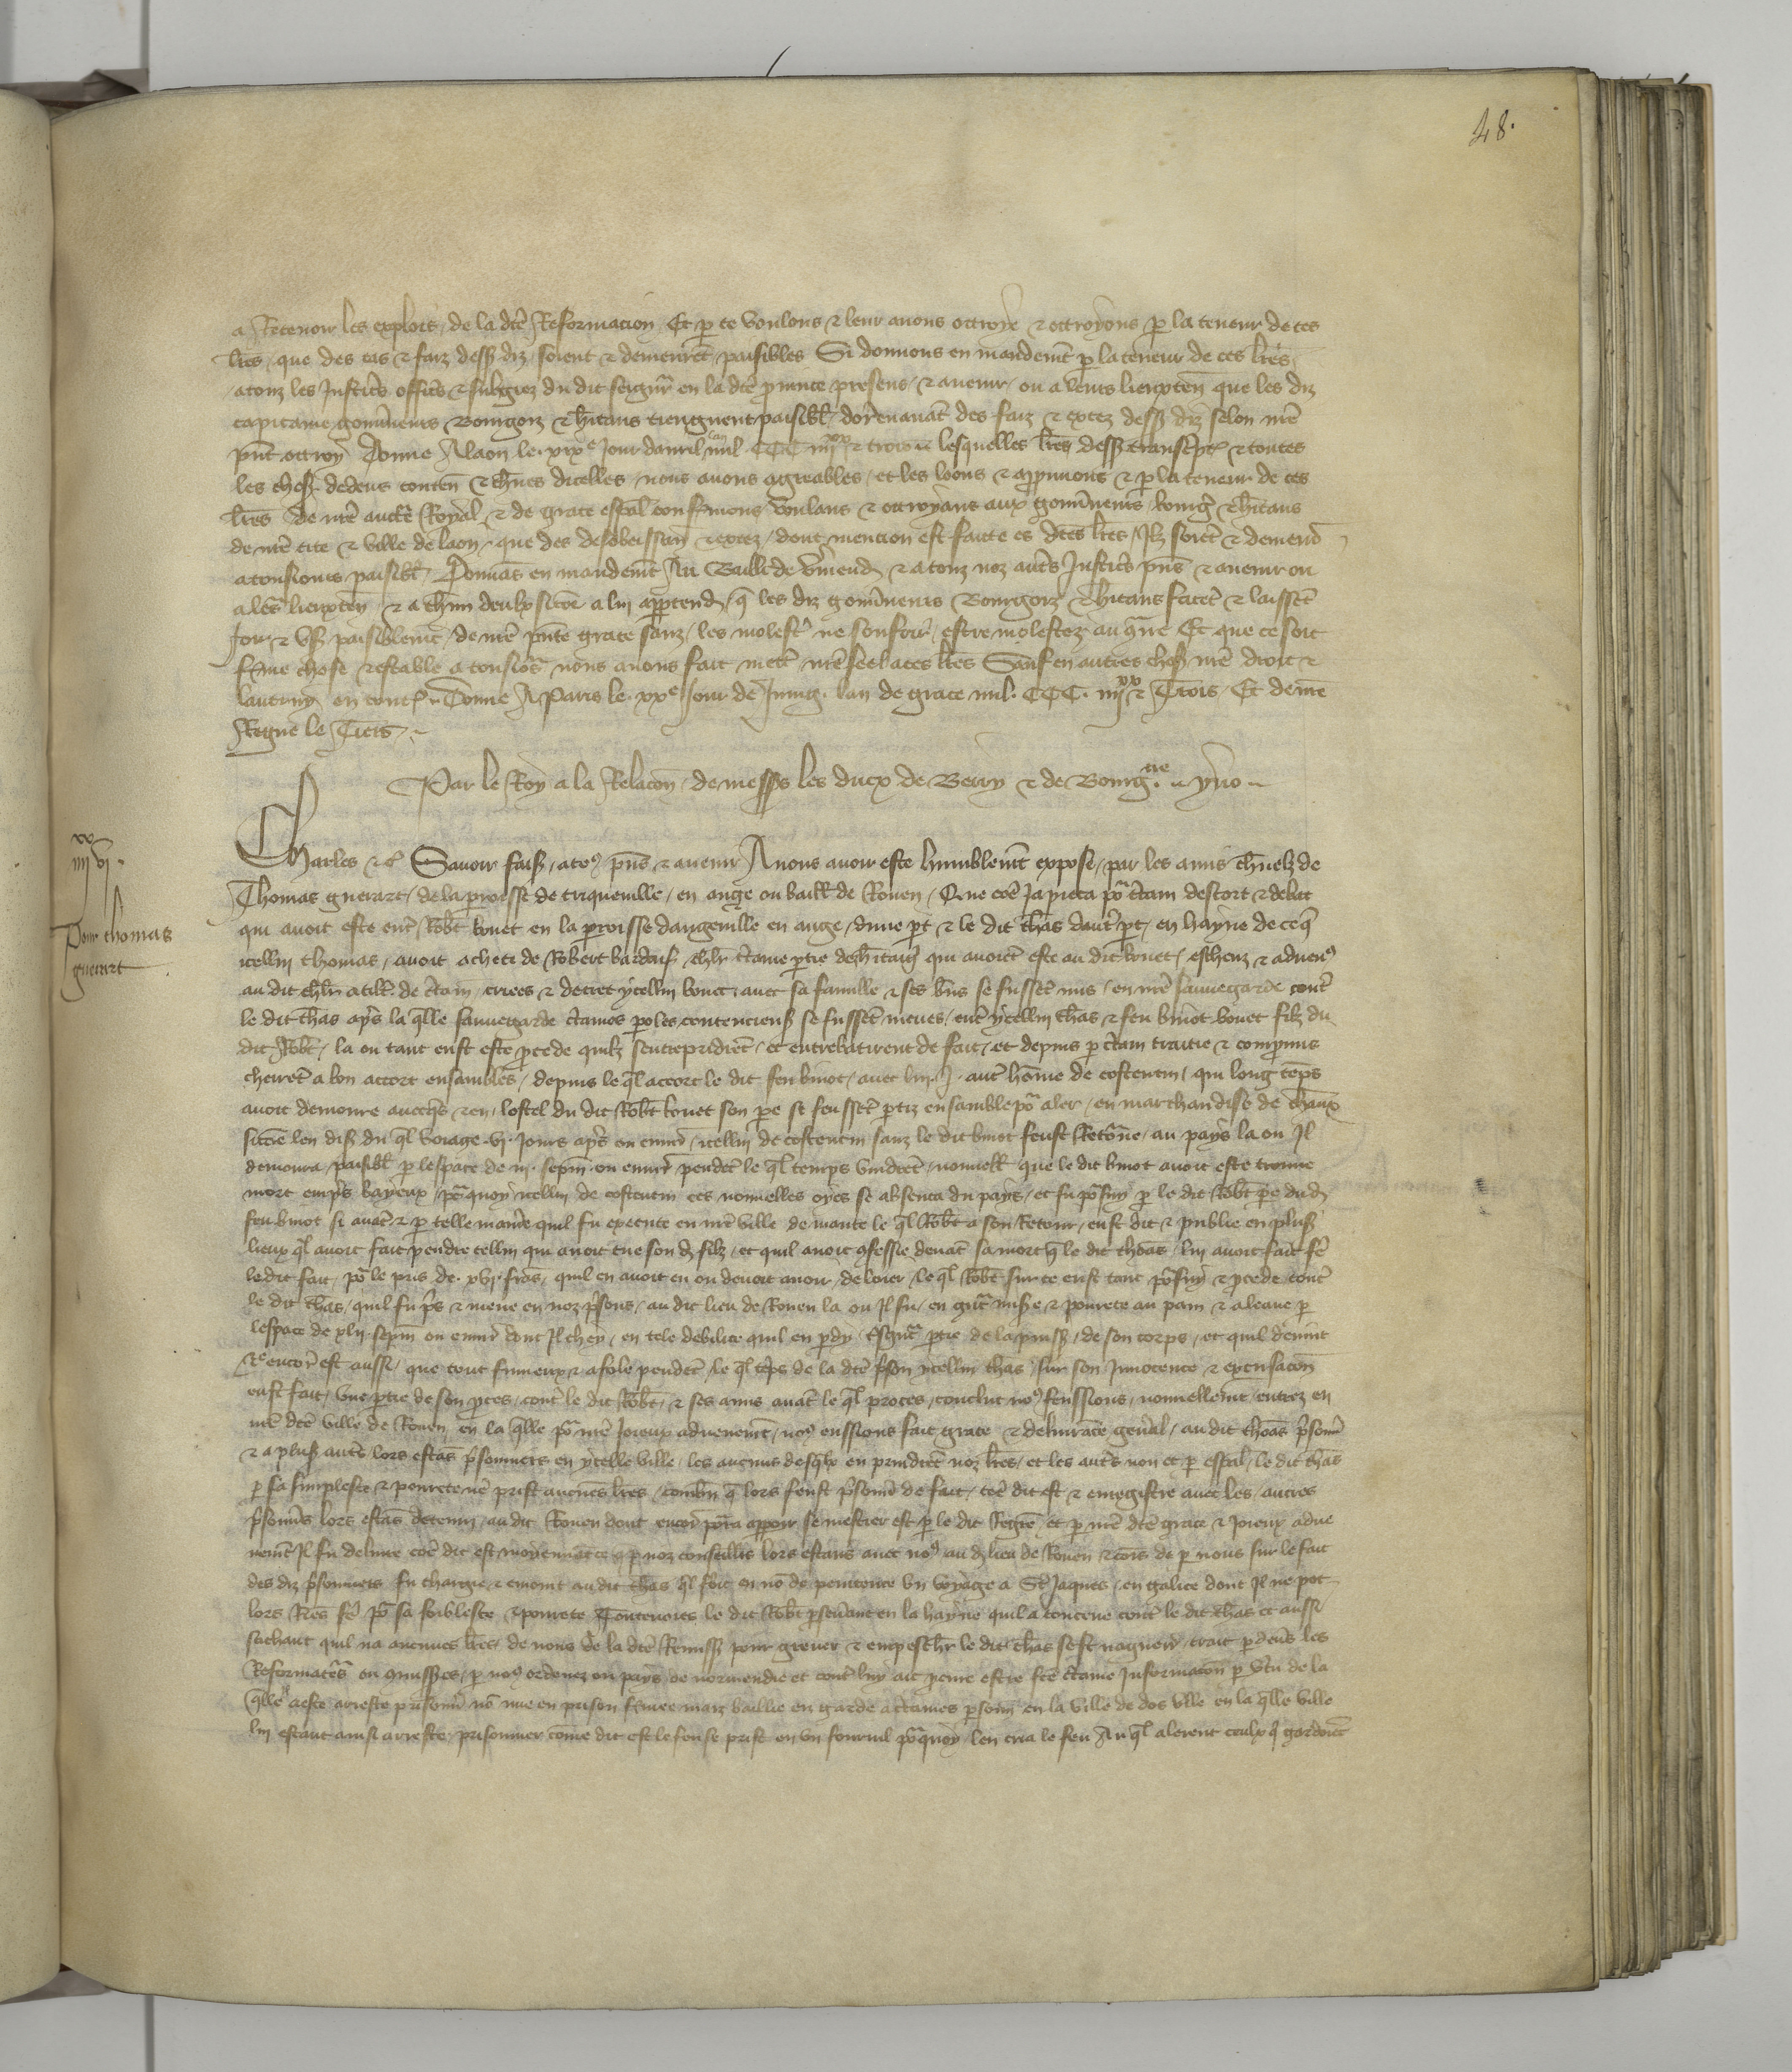 48.
a Retenir les explois de la dte Reformacion Et p ce voulons & leur avons ottroye & ottroyons p la teneur de ces
lres que des cas & faiz dess diz soient & demeuret paisibles Si donnons en mandemt p la teneur de ces lres
a touz les Justic's offic's & subgiez du dit seignr en la dte prevince presens & avenir ou a leurs lieuxten que les diz
capitaine gouvneurs Bourgoiz & hitans tiengnent paisibl dorenavat des faiz & excez dess diz selon nre
pnt ottroy Donne A laon le xixe Jour davril lan mil CCC iiijxx & trois lesquelles lres dess transcpt & toutes
les choses dedens conten & chunes dicelles nous avons agreables et les loons & appvuons & p la teneur de ces
lres de nre auctte Royal & de grace espal confmons voulans & ottroyans aux gouvneurs bourg & hitans
de nre cite & ville de laon que des desobeissan & excez dont mencion est faicte es dtes lres Ilz soiet & demeur
a tousiours paisibl Donnas en mandemt Au Bailli de Vmend & a touz noz autes Justic's pns & avenir ou
a les lieuxten & a chun deulx sicoe a lui apptend q les diz gouvneurs Bourgoiz & hitans facet & laisset
Jour & us paisiblemt de nre pnte grace sanz les molest' ne souffrir estre molestez au qre Et que ce soit
fme chose & estable a tousios nous avons fait mett' nre seel a ces lres Sauf en autres choses nre droit &
lautruy en toutes Donne A Paris le xxe Jour de Juing lan de grace mil CCC iiijxx & Trois Et de nre
Regne le Tiers
Par le Roy a la Relacon de mess's les ducx de Berry & de Bourgne yvo
xx
iiij vj
Pour thomas
guerart
Charles &c Savoir fais a tos pns & avenir A nous avoir este humblemt expose par les amis chnelz de
Thomas guerart de la proisse de criqueville en auge ou baill de Rouen Que coe Ja pieca por ctain descort & debat
qui avoit este ent' Robt bouet en la proisse dangerville en auge dune pt & le dit thas daut' pt en hayne de ce q
icellui thomas avoit achete de Robert bardouf chlr ctaine ptie dez hitaig qui avoiet este au dit bouet escheuz & advenus
au dit chlr a tilt' de ctain criees & decret ycellui bouet avec sa famille & ses bns se fusset mis en nre sauvegarde cont'
le dit thas aps la qlle sauvegarde ctaines poles contencieus se fusset meues ent' ycellui thas & feu binot bouet filz du
dit Robt la ou tant eust este pcede quilz sentrepridret et entrebatirent de fait et depuis p ctain traitie & compmis
cheiret a bon accort ensambles depuis le ql accort le dit feu binot avec lui j aut' home de costentin qui long teps
avoit demoure avecqs & en lostel du dit Robt bouet son pe se feusset ptiz ensamble por aler en marchandise de chaux
sicoe len dis du ql voiage vj jours aps ou enviro icellui de costentin sanz le dit binot feust Retorne au pays la ou Il
demoura paisibl p lespace de iij sepm ou enviro pendet le ql temps vindret nouvell que le dit binot avoit este trouve
mort emps bayeux porquoy icellui de costentin ces nouvelles oyes se absenta du pays et fu porsuy p le dit Robt pe dud
feu binot si avat & p telle maniere quil fu execute en nre ville de mante le ql Robt a son Retour eust dit & publie en plus
lieux ql avoit fait pendre cellui qui avoit tue son d filz et quil avoit confesse devat sa mort q le dit thoas lui avoit fait fe
le dit fait por le pris de xvj frans quil en avoit eu ou devoit avoir de loier le ql Robt sur ce eust tant porsuy & pcede cont'
le dit thas quil fu pris & mene en noz prisons au dit lieu de Rouen la ou Il fu en grt misere & pourete au pain & a leaue p
lespace de xlij sepm ou enviro dont Il chey en tele debilite quil en pdy tsgrt ptie de la puiss de son corps et quil devint
& encor est aussi que tout fumeux & afole pendet le ql teps de la dte pson ycellui thas sur son Innocence & excusacon
eust fait une ptie de son pces cont' le dit Robt & ses amis avat le ql proces conclut nos feussions nouvellemt entrez en
nre dte ville de Rouen en la qlle por nre Joieux advenemt nos eussions fait grace & delivrace gen'al au dit thoas prisonn
& a plus autres lors estas prisonniers en ycelle ville les aucuns desqlx en prindret noz lres et les autes non et p espal le dit thas
p sa simplesce & pourete ne prist aucunes lres combn q lors feust prisonn de fait coe dit est & enregistre avec les autres
prisonns lors estas detenuz au dit Rouen dont encor porra apparoir se mestier est p le dit Regre et p nre dte grace & Joieux adve
nemt Il fu delivre coe dit est moyennat ce q p noz conseilliers lors estans avec nos au d lieu de Rouen & cois de p nous sur le fait
des diz prisonniers fu chargie & enioint au dit thas ql feist en no de penitence un voyage a St Jaques en galice dont Il ne pot
lors Riens fe por sa foiblesce & pourete Toutevoies le dit Robt pseverant en la hayne quil a conceue cont' le dit thas et aussi
sachant quil na aucunes lres de nous de la dte Remiss pour grever & empeschr le dit thas sest naguer trait pdevs les
Reformateurs ou comiss'es p nos ordenez ou pays de normendie et cont' luy ait peine estre fce ctaine Informacon p vtu de la
qlle il a este arreste prisonn no mie en prison fmee maiz baillie en garde a ctaines psonn en la ville de dosville en la qlle ville
lui estant ainsi arreste prisonnier come dit est le feu se prist en un fournil porquoy len cria le feu Au ql alerent ceulx q gardoiet